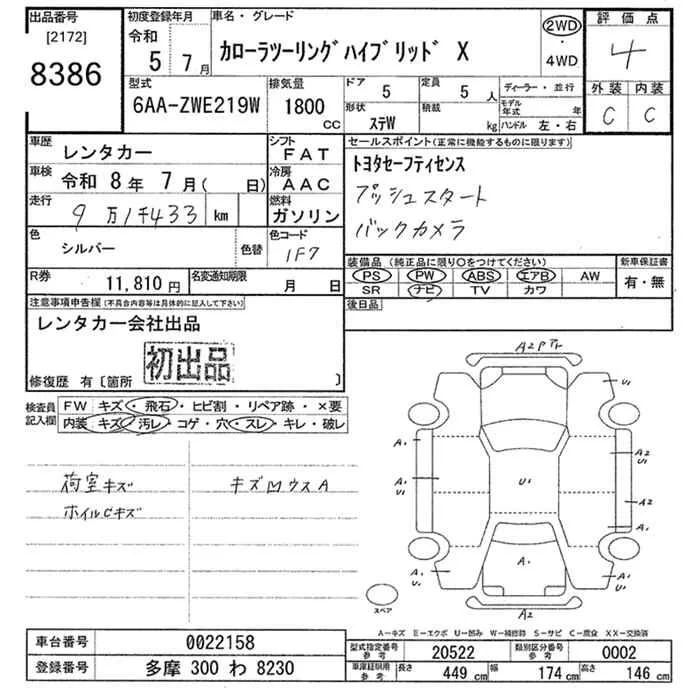 出品番号
[2172]
8386
初度登録年月
令和
5 7月
車名・グレード
カローラツーリングハイブリッド X
2WD
・
4WD
評価点
4
外装 内装
C C
型式
6AA-ZWE219W
排気量
1800
CC
ドア
5
定員
5 人
形状
ステW
積載
kg
ディーラー・並行
モデル年式 年
ハンドル 左・右
車歴
レンタカー
車検
令和 8年 7月( 日)
走行
9万1千433 km
シフト
FAT
冷房
AAC
燃料
ガソリン
セールスポイント(正常に機能するものに限ります)
トヨタセーフティセンス
プッシュスタート
バックカメラ
色
シルバー
色替
色コード
1F7
R券
11,810円
名変通知期限
月 日
装備品(純正品に限り○をつけてください)
PS PW ABS エアB AW
SR ナビ TV カワ
新車保証書
有・無
後日品
注意事項申告欄(不具合内容等は具体的に記入して下さい)
レンタカー会社出品
初出品
修復歴 有〔箇所 〕
検査員
記入欄
FW キズ・飛石・ヒビ割・リペア跡・×要
内装 キズ・汚レ・コゲ・穴・スレ・キレ・破レ
荷室キズ
ホイルCキズ
キズMウスA
A2Pアト
U1
A1
U1
A1
A2
U1
A1
U1
U1
A2
A1
A1
A1
U1
A2
スペア
A―キズ E―エクボ U―凹み W―補修跡 S―サビ C―腐食 XX―交換済
車台番号
0022158
登録番号
多摩 300 わ 8230
型式指定番号
参考
20522
類別区分番号
参考
0002
車庫証明用
参考
長さ
449 cm
幅
174 cm
高さ
146 cm